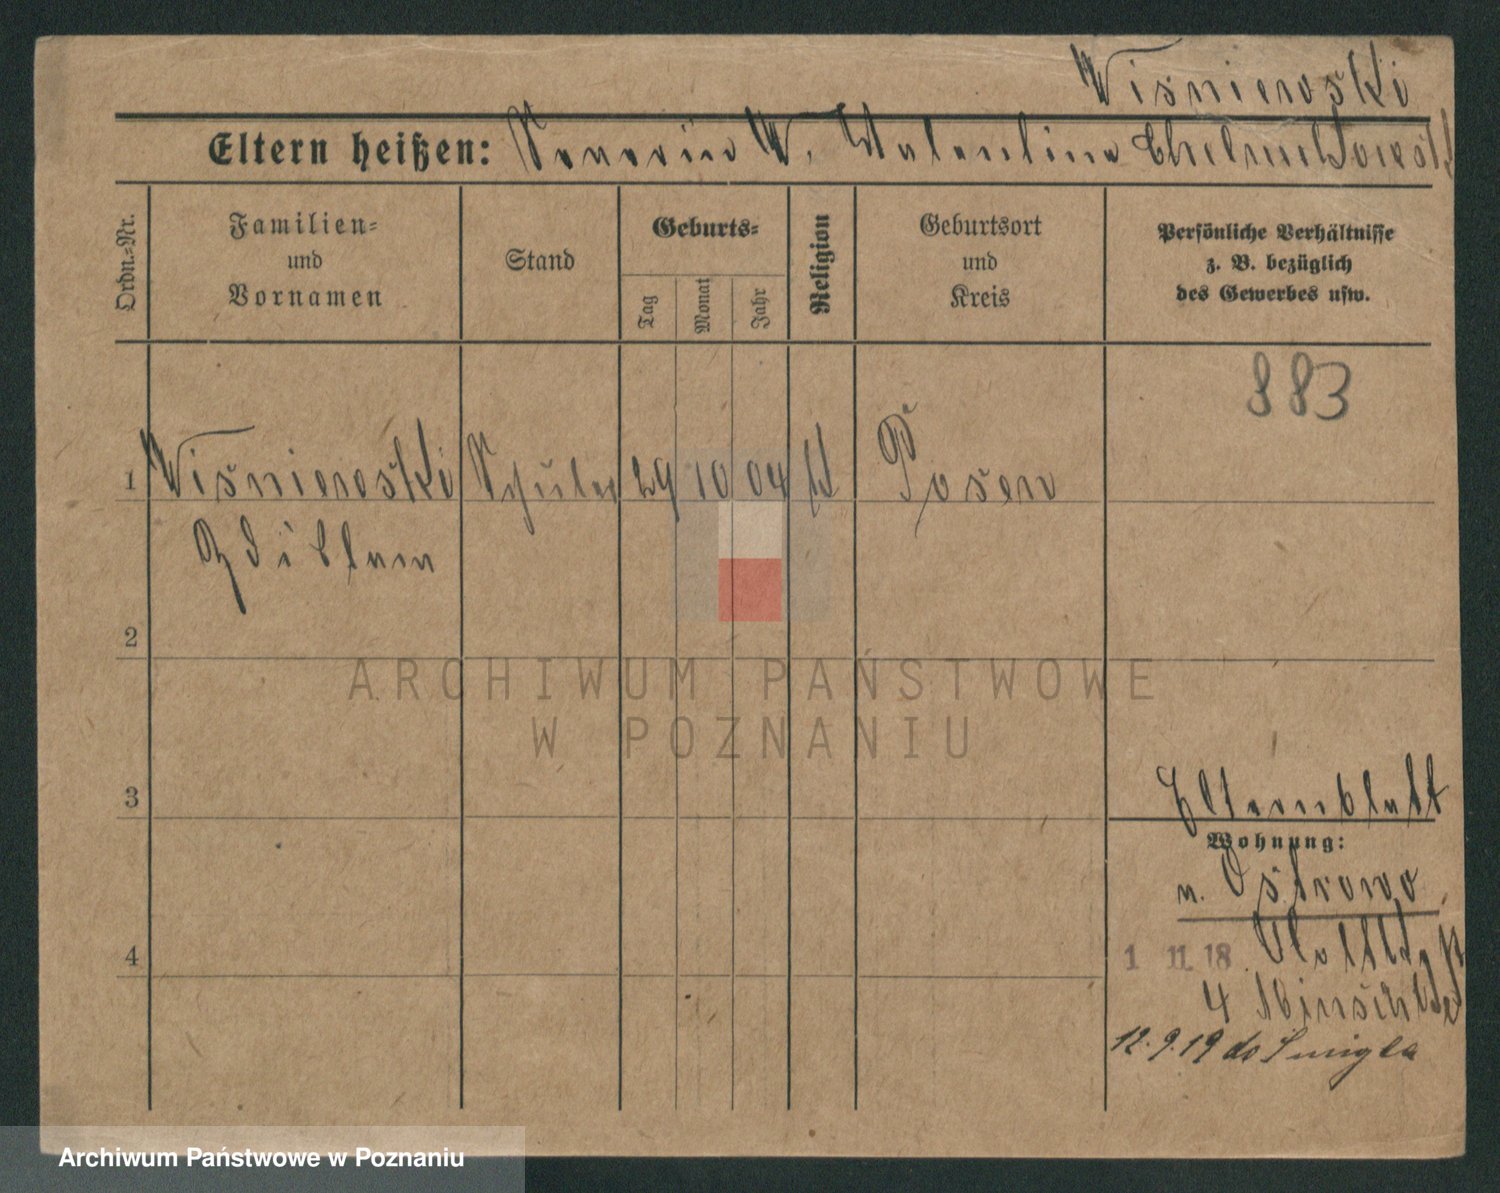 Wiśniewski
Eltern heißen: Severin W. Valentine
Ordn.-Nr.
Familien-
und
Vornamen
Stand
Geburts-
Tag
Monat
Jahr
Religion
Geburtsort
und
Kreis
Persönliche Verhältnisse
z. B. bezüglich
des Gewerbes usw.
883
1 Wiśniewski Schüler 29 10 04 k Posen
2
3
Elternblatt
Wohnung:
n. Ostrowo
4
1 11. 18
4
12.9.19 do Śmigla
ARCHIWUM PAŃSTWOWE
W POZNANIU
Archiwum Państwowe w Poznaniu